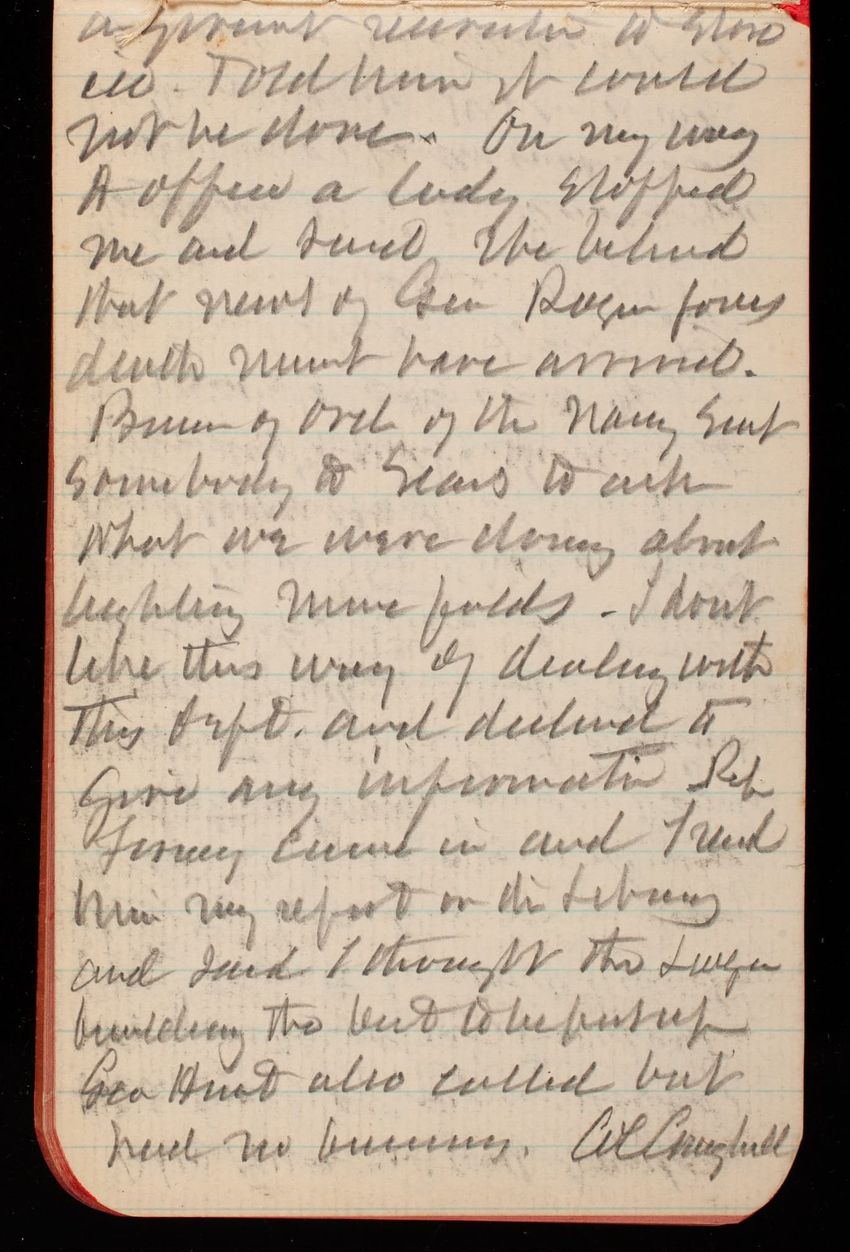 a recruiter to store
ice. Told him it could
not be done. On my way
to office a lady stopped
me and said she believed
that news of Gen
death must have arrived.
Bureau of Ord of the Navy sent
somebody to Sears to ask
what we were doing about
lighting mine fields. I dont
like this way of dealing with
this Dept. and declined to
give any information Rep
Forney came in and I read
him my report on the Library
and said I thought the larger
building the best to be put up
Geo Hunt also called but
had no business. Col